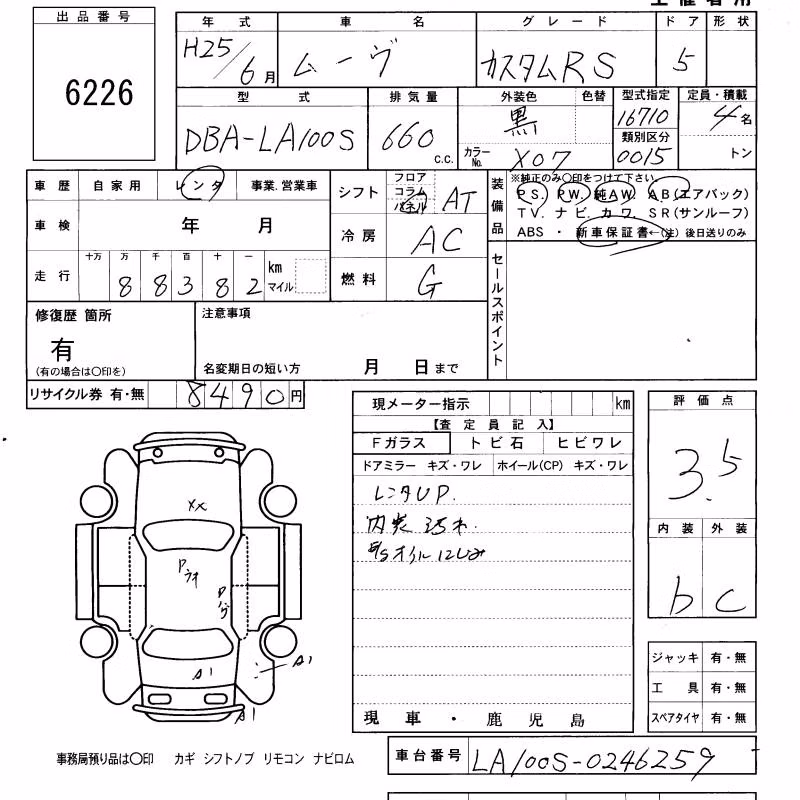 出品番号
6226
年式 車名 グレード ドア 形状
H25/6月 ムーヴ カスタムRS 5
型式 排気量 外装色 色替 型式指定 定員・積載
DBA-LA100S 660 c.c. 黒 16710 4名
カラーNo. X07 類別区分 0015 トン
車歴 自家用 レンタ 事業.営業車
車検 年 月
走行 十万 万 千 百 十 一 km マイル
8 8 3 8 2
シフト フロア コラム パネル AT
冷房 AC
燃料 G
装備品 ※純正のみ〇印をつけて下さい
PS. PW. 純AW. AB(エアバック)
TV. ナビ. カワ. SR(サンルーフ)
ABS ・ 新車保証書←(注) 後日送りのみ
セールスポイント
修復歴 箇所
有
(有の場合は〇印を)
注意事項
名変期日の短い方 月 日まで
リサイクル券 有・無 8490円
現メーター指示 km
【査定員記入】
Fガラス トビ石 ヒビワレ
ドアミラー キズ・ワレ ホイール(CP) キズ・ワレ
レンタUP.
オイルにじみ
現車・鹿児島
評価点
3.5
内装 外装
b c
ジャッキ 有・無
工具 有・無
スペアタイヤ 有・無
XX
P
P
A1
A1
A1
事務局預り品は〇印 カギ シフトノブ リモコン ナビロム
車台番号 LA100S-0246259